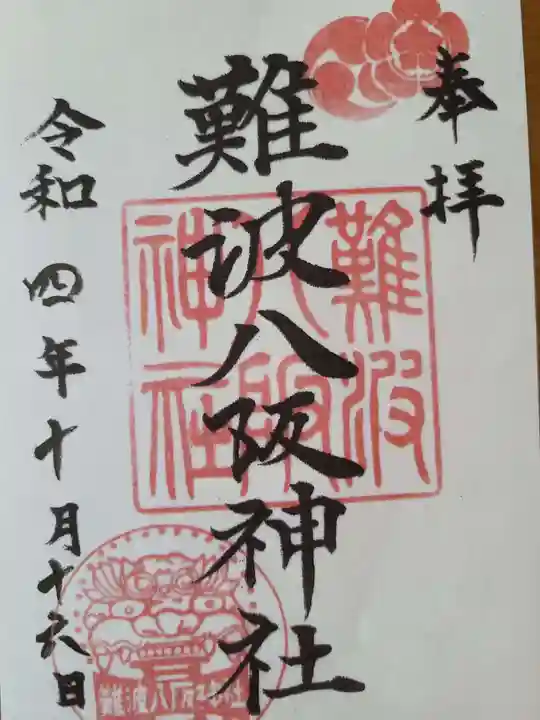 奉拝
難波八阪神社
難波八阪神社
令和四年十月十六日
難波八阪神社